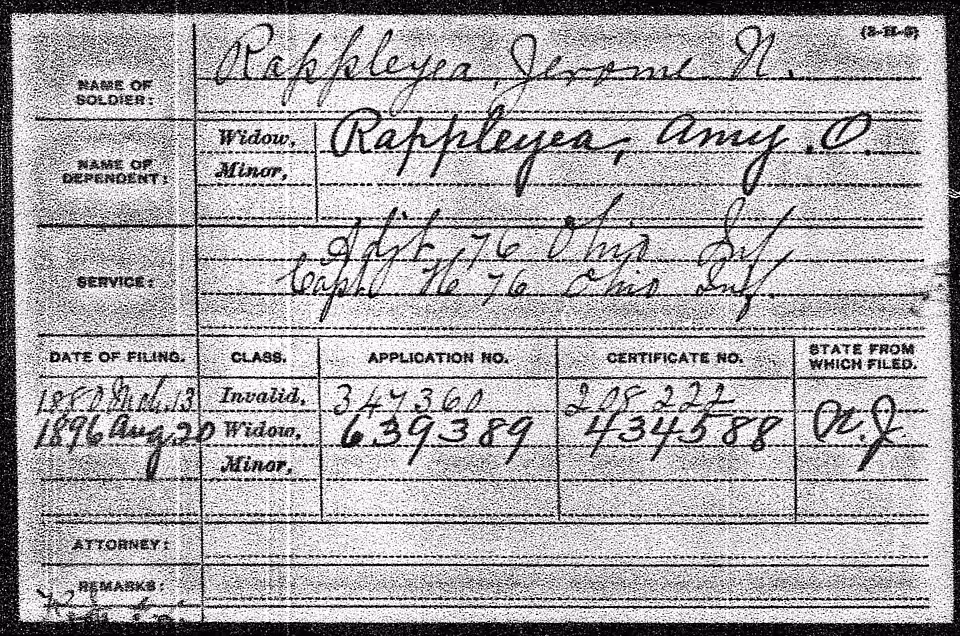 (3-H-3)
NAME OF SOLDIER: Rappleyea, Jerome N.
NAME OF DEPENDENT: Widow, Rappleyea, Amy O.
Minor,
SERVICE: Adjt 76 Ohio Inf
Capt. H 76 Ohio Inf.
DATE OF FILING. CLASS. APPLICATION NO. CERTIFICATE NO. STATE FROM WHICH FILED.
1880 Mch. 13 Invalid, 347360 208222
1896 Aug 20 Widow, 639389 434588 N.J.
Minor,
ATTORNEY:
REMARKS: